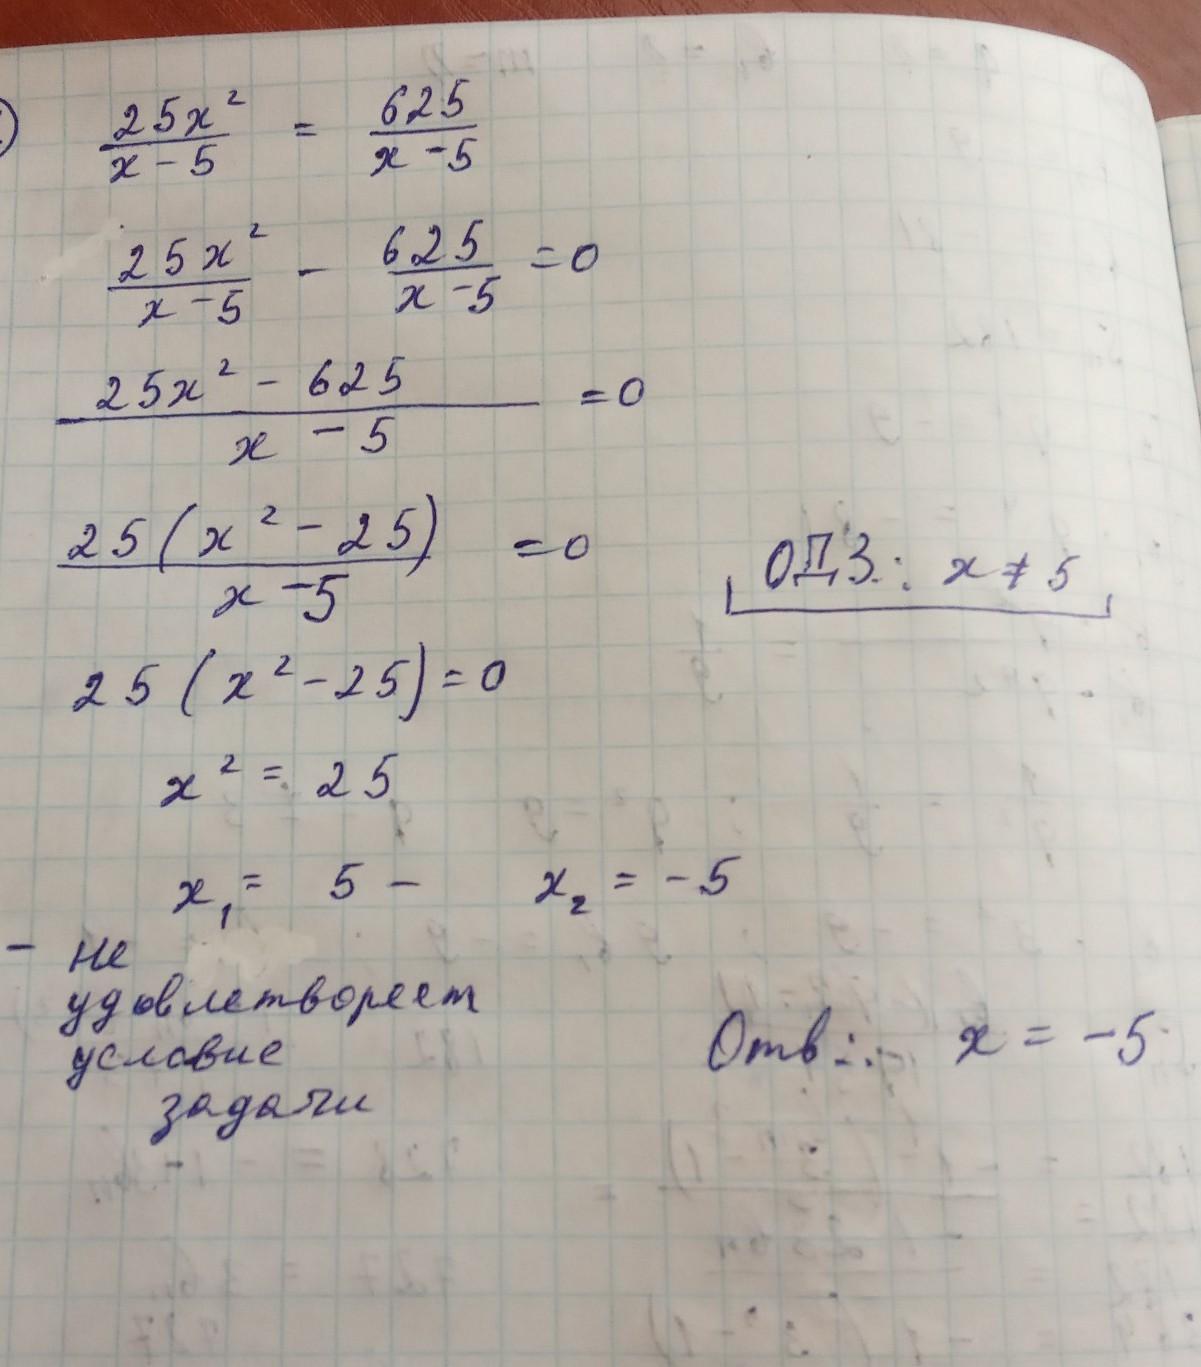 25x² / x - 5 = 625 / x - 5
25x² / x - 5 - 625 / x - 5 = 0
25x² - 625 / x - 5 = 0
25(x² - 25) / x - 5 = 0
ОДЗ: x ≠ 5
25(x² - 25) = 0
x² = 25
x₁ = 5 - x₂ = -5
- не
удовлетвореет
условие
задачи
Отв: x = -5